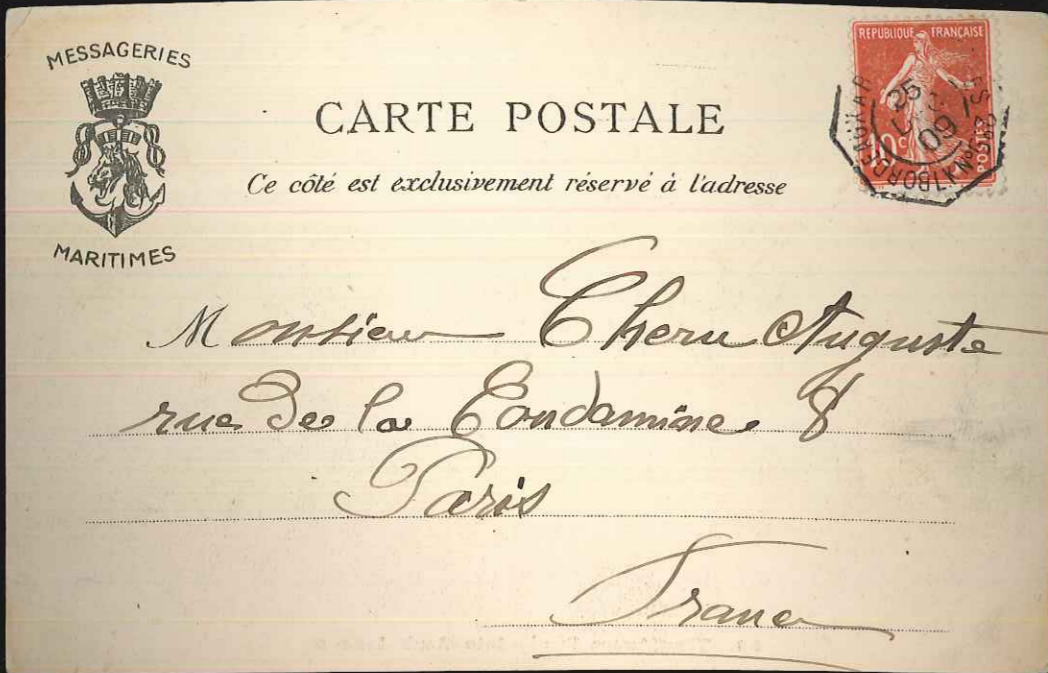 MESSAGERIES
MARITIMES
CARTE POSTALE
Ce côté est exclusivement réservé à l'adresse
REPUBLIQUE FRANÇAISE
10c
POSTES
25
09
Monsieur Cheru Auguste
rue de la Condamine 8
Paris
France